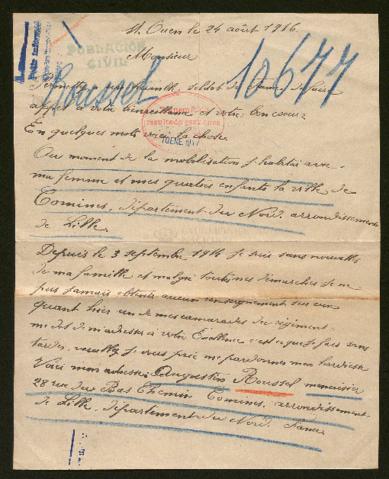 St Ouen le 24 août 1916
POBLACION
CIVIL
10677
Roussel
Monsieur
Permettez, un soldat de
appel à votre bienveillance et votre bon coeur
10 ENE 1917
En quelques mots voici la chose
Au moment de la mobilisation j'habitais avec
ma femme et mes quatre enfants la ville de
Comines, département du Nord, arrondissement
de Lille.
Depuis le 3 septembre 1914 je suis sans nouvelle
de ma famille et malgré toutes mes démarches je n'ai
pus jamais obtenir aucun renseignement sur eux
quant hier un de mes camarades du régiment
m'dit de m'adresser à votre Excellence c'est ce que je fais sans
tarder, veuillez je vous prie me pardonner mon hardiesse
Voici mon adresse Augustin Roussel menuisier
28 rue du Bas Chemin Comines, arrondissement
de Lille, département du Nord, France